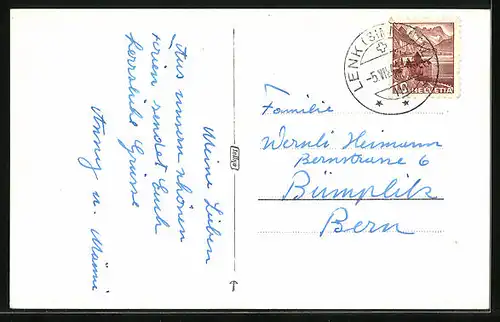 Meine Lieben
Aus unsern schönen
Ferien sendet Euch
herzliche Grüsse
Anny u.
LENK (SIMMENTAL)
-5.VII.
HELVETIA
Familie
Wernli Heimann
Bernstrasse 6
Bümpliz
Bern